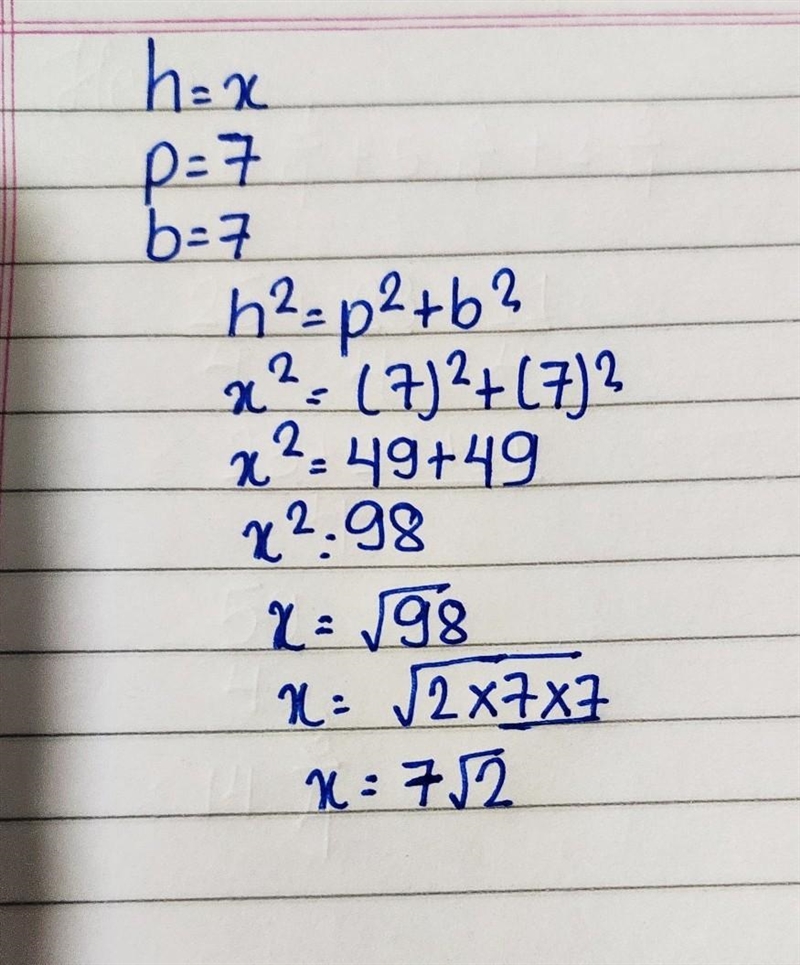 h = x
p = 7
b = 7
h² = p² + b²
x² = (7)² + (7)²
x² = 49 + 49
x² : 98
x = √98
x = √2×7×7
x = 7√2